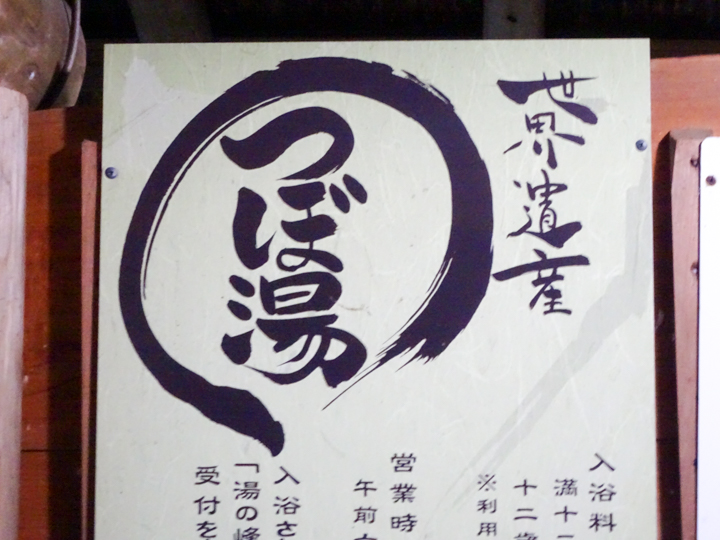 世界遺産
つぼ湯
入浴料
満十二
十二歳
※利用
営業時
午前
入浴さ
「湯の峰
受付を